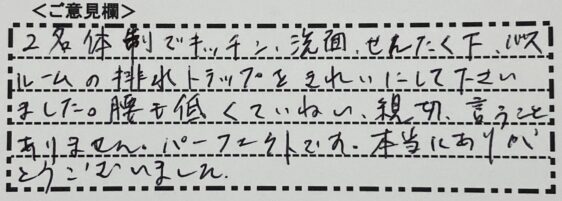 ＜ご意見欄＞
2名体制でキッチン、洗面、せんたく下、バス
ルームの排水トラップをきれいにして下さい
ました。腰も低くていねい、親切、言うこと
ありません。パーフェクトです。本当にありが
とうございました。